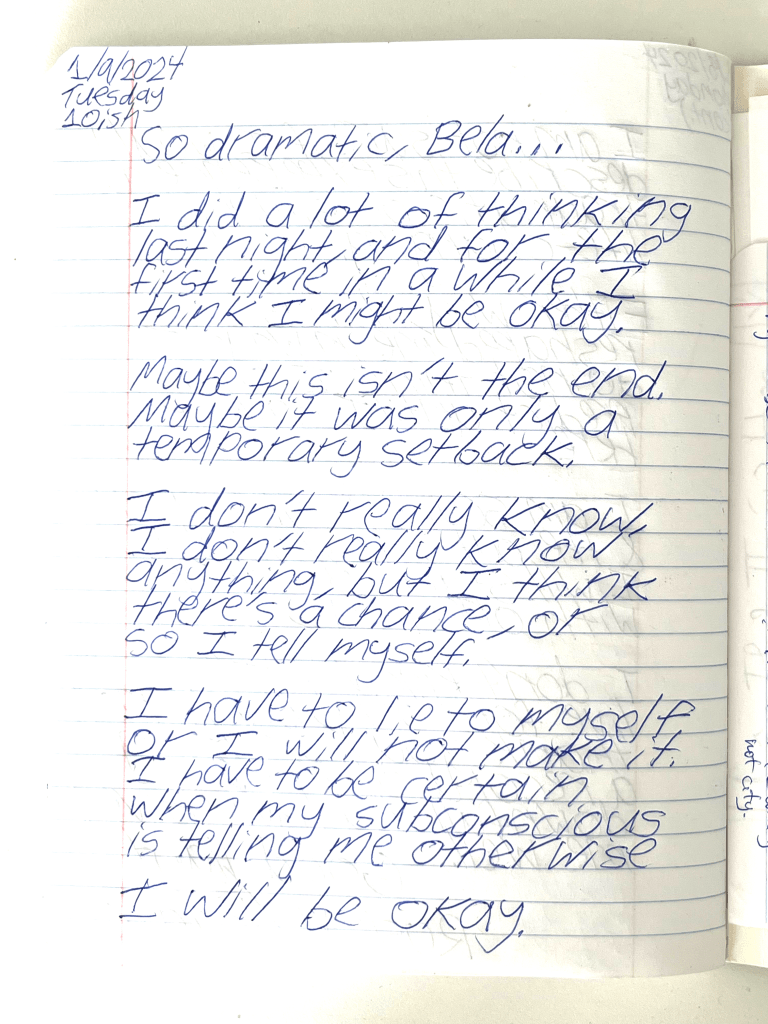 1/9/2024
Tuesday
10ish
So dramatic, Bela...
I did a lot of thinking
last night, and for the
first time in a while I
think I might be okay.
Maybe this isn't the end.
Maybe it was only a
temporary setback.
I don't really know,
I don't really know
anything, but I think
there's a chance, or
so I tell myself.
I have to lie to myself
or I will not make it.
I have to be certain
when my subconscious
is telling me otherwise
I will be okay.
not city.